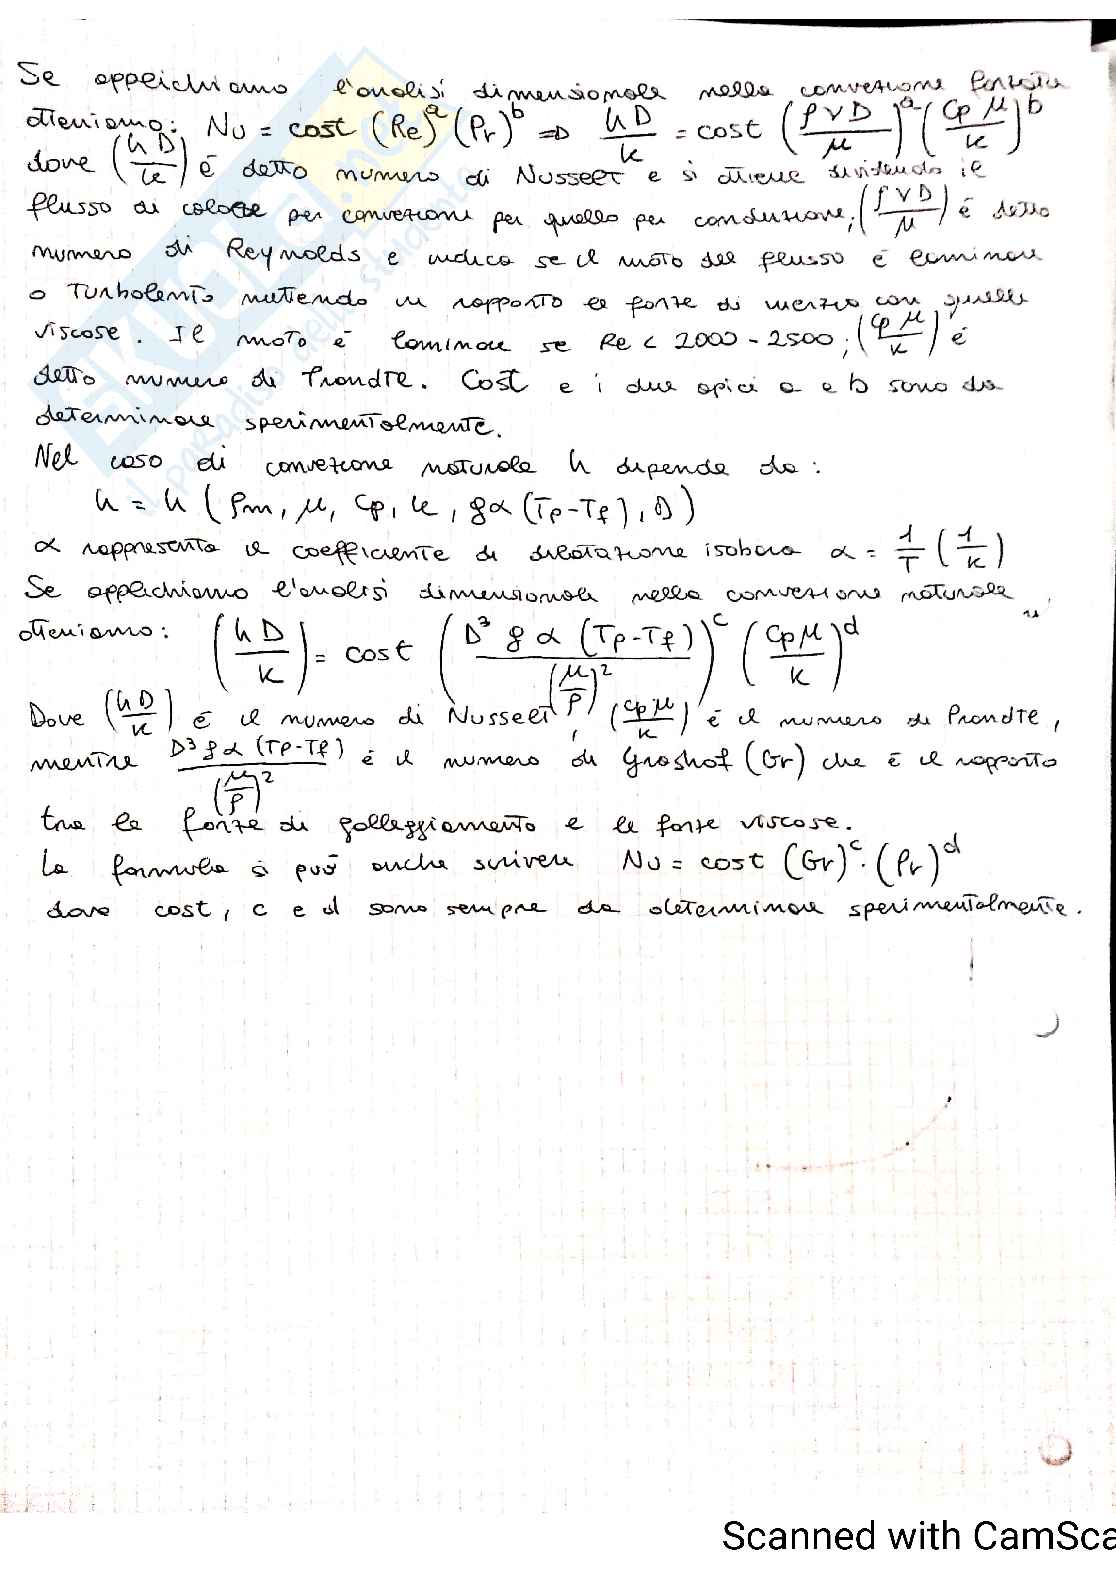 Se applichiamo l'analisi dimensionale nella convezione forzata
otteniamo: Nu = cost (Re)^a (Pr)^b => hD/k = cost (ρVD/μ)^a (Cp μ/k)^b
dove (hD/k) è detto numero di Nusselt e si ottiene dividendo il
flusso di calore per convezione per quello per conduzione; (ρVD/μ) è detto
numero di Reynolds e indica se il moto del flusso è laminare
o turbolento mettendo in rapporto le forze di inerzia con quelle
viscose. Il moto è laminare se Re < 2000 - 2500; (Cp μ/k) è
detto numero di Prandtl. Cost e i due apici a e b sono da
determinare sperimentalmente.
Nel caso di convezione naturale h dipende da:
h = h (ρm, μ, Cp, k, gα(Tp-Tf), D)
α rappresenta il coefficiente di dilatazione isobara α = 1/T (1/K)
Se applichiamo l'analisi dimensionale nella convezione naturale
otteniamo: (hD/k) = cost (D³ g α (Tp-Tf)/(μ/ρ)²)^c (Cpμ/k)^d
Dove (hD/k) è il numero di Nusselt, (Cpμ/k) è il numero di Prandtl,
mentre D³gα(Tp-Tf)/(μ/ρ)² è il numero di Grashof (Gr) che è il rapporto
tra le forze di galleggiamento e le forze viscose.
La formula si può anche scrivere Nu = cost (Gr)^c · (Pr)^d
dove cost, c e d sono sempre da determinare sperimentalmente.
SKUOLA.net
il paradiso dello studente
Scanned with CamSca